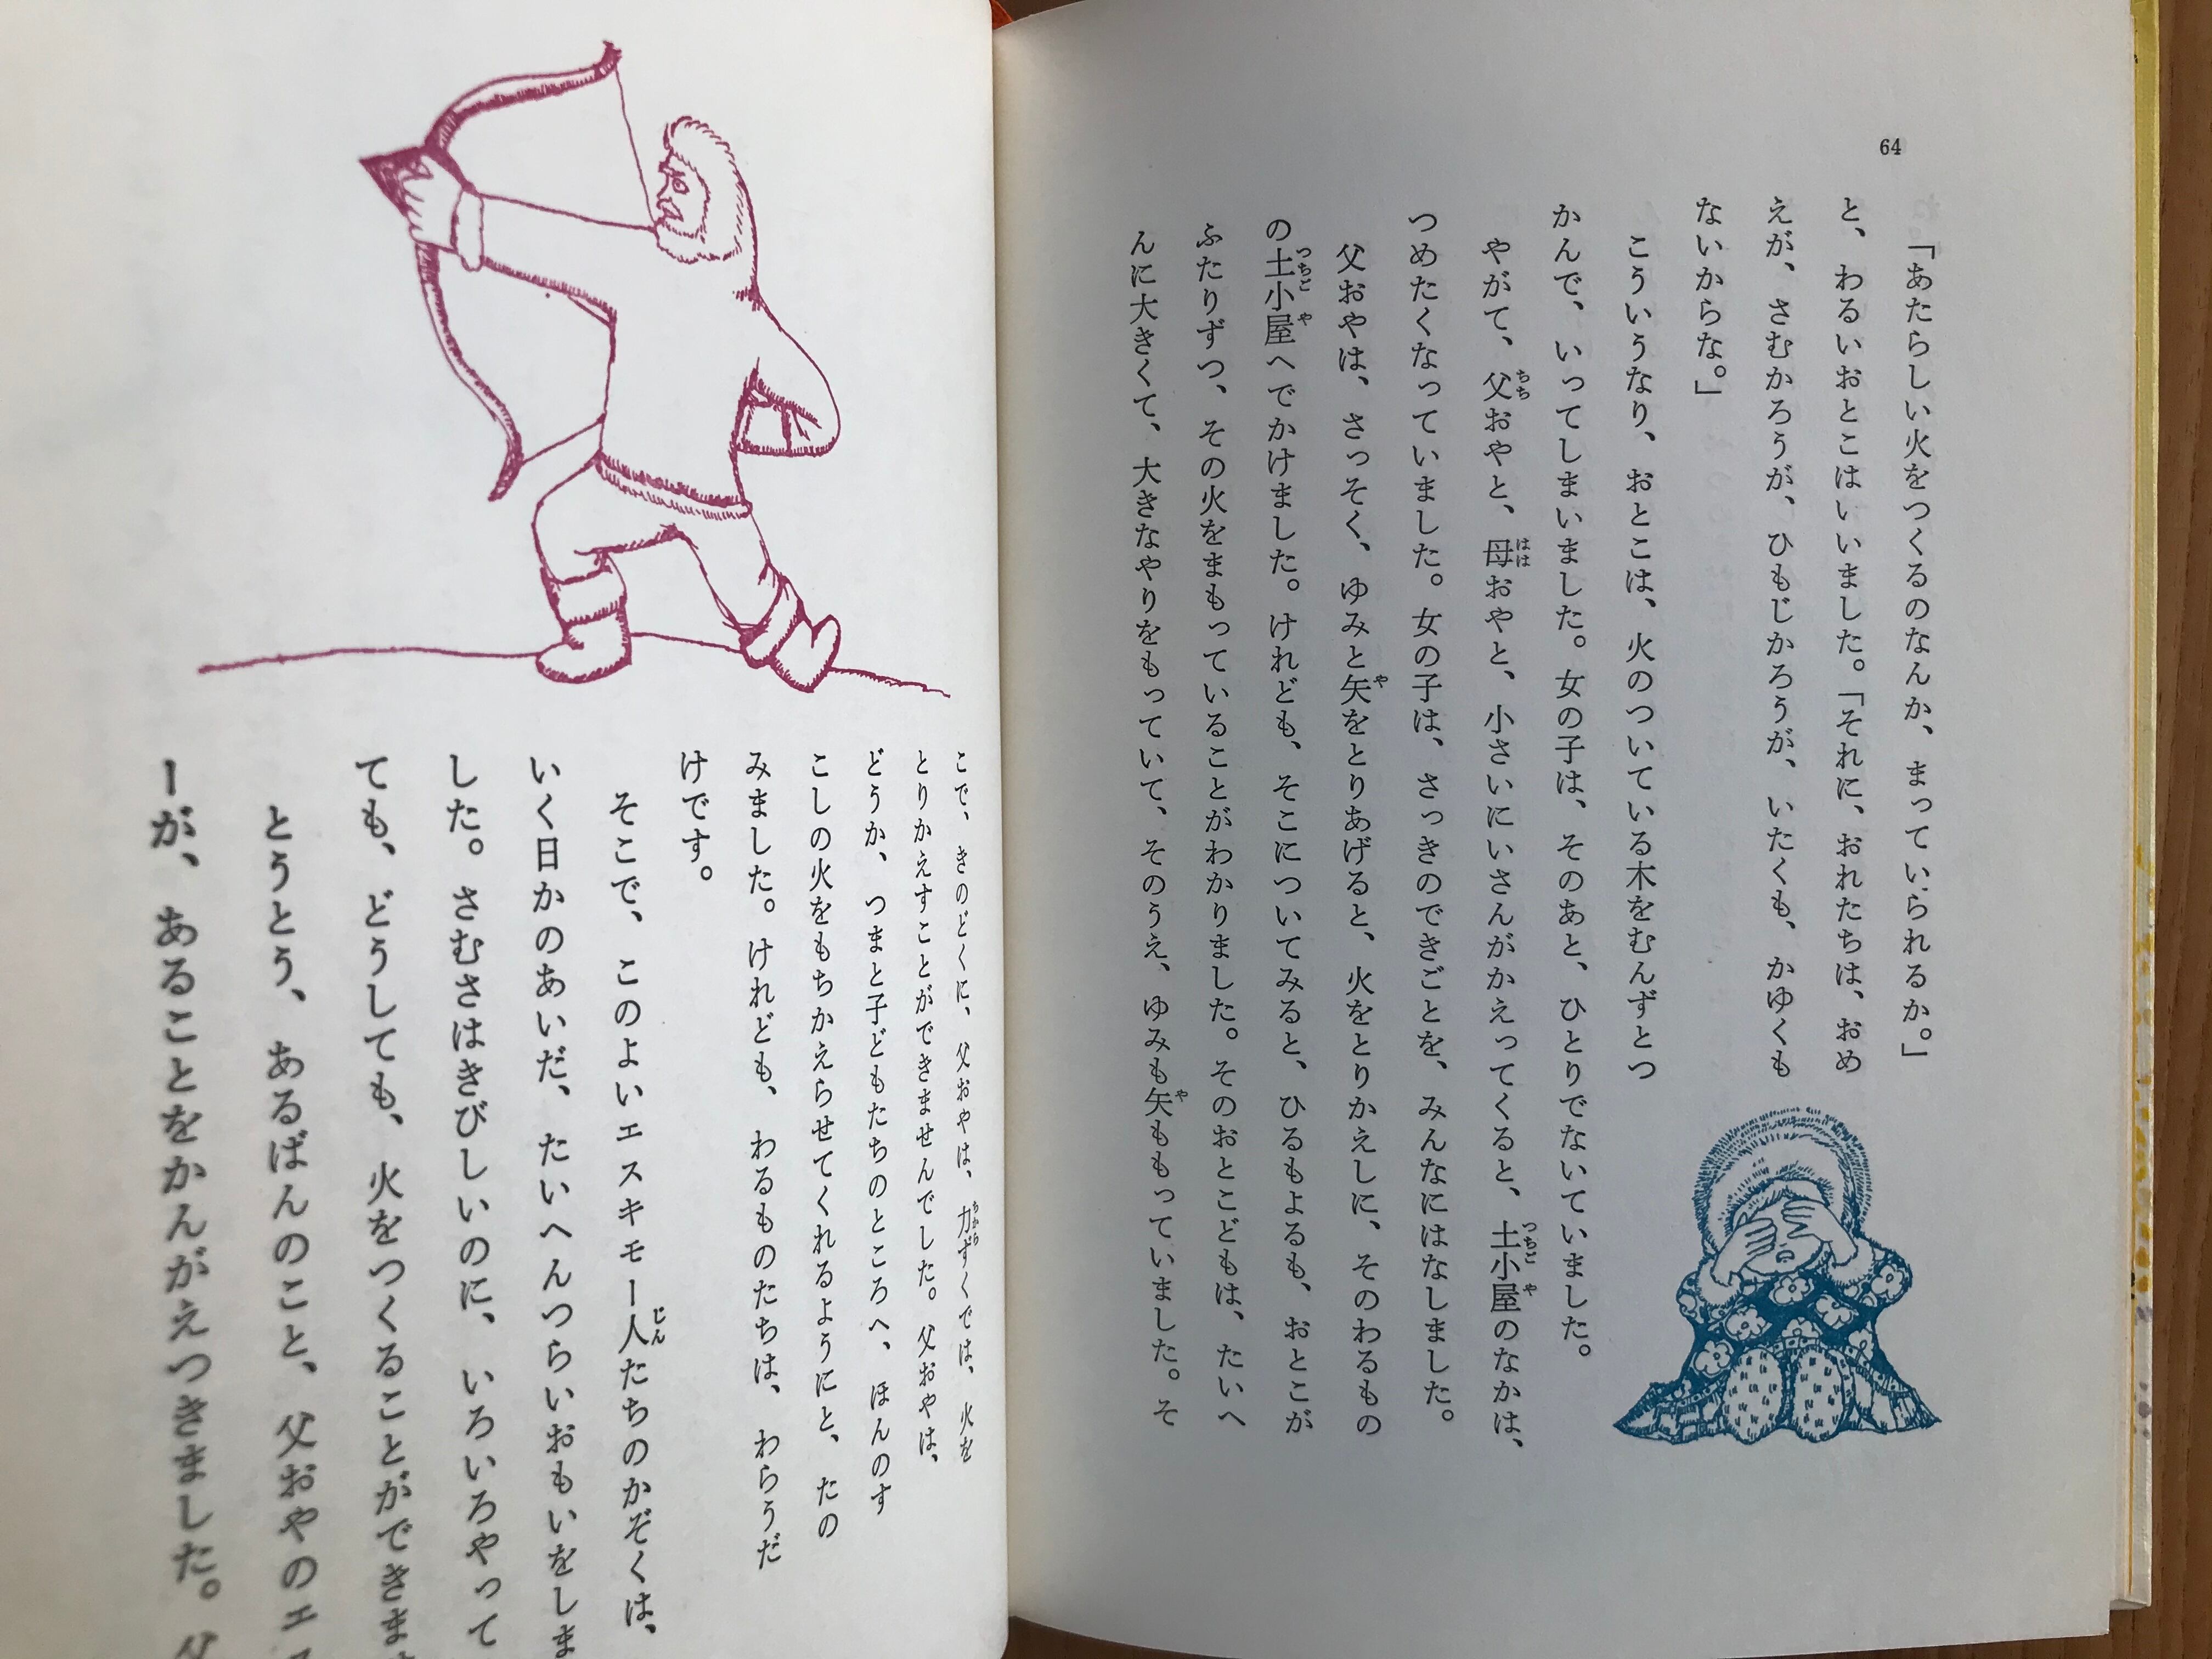 64
「あたらしい火をつくるのなんか、まっていられるか。」
と、わるいおとこはいいました。「それに、おれたちは、おめ
えが、さむかろうが、ひもじかろうが、いたくも、かゆくも
ないからな。」
こういうなり、おとこは、火のついている木をむんずとつ
かんで、いってしまいました。女の子は、そのあと、ひとりでないていました。
やがて、父おやと、母おやと、小さいにいさんがかえってくると、土小屋のなかは、
つめたくなっていました。女の子は、さっきのできごとを、みんなにはなしました。
父おやは、さっそく、ゆみと矢をとりあげると、火をとりかえしに、そのわるもの
の土小屋へでかけました。けれども、そこについてみると、ひるもよるも、おとこが
ふたりずつ、その火をまもっていることがわかりました。そのおとこどもは、たいへ
んに大きくて、大きなやりをもっていて、そのうえ、ゆみも矢ももっていました。そ
こで、きのどくに、父おやは、力ずくでは、火を
とりかえすことができませんでした。父おやは、
どうか、つまと子どもたちのところへ、ほんのす
こしの火をもちかえらせてくれるようにと、たの
みました。けれども、わるものたちは、わらうだ
けです。
そこで、このよいエスキモー人たちのかぞくは、
いく日かのあいだ、たいへんつらいおもいをしま
した。さむさはきびしいのに、いろいろやって
ても、どうしても、火をつくることができま
とうとう、あるばんのこと、父おやのエ
ーが、あることをかんがえつきました。父